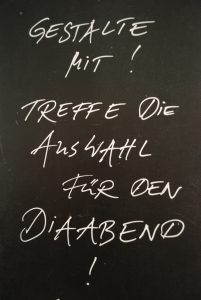 GESTALTE
MIT !
TREFFE DIE
AUSWAHL
FÜR DEN
DIAABEND
!